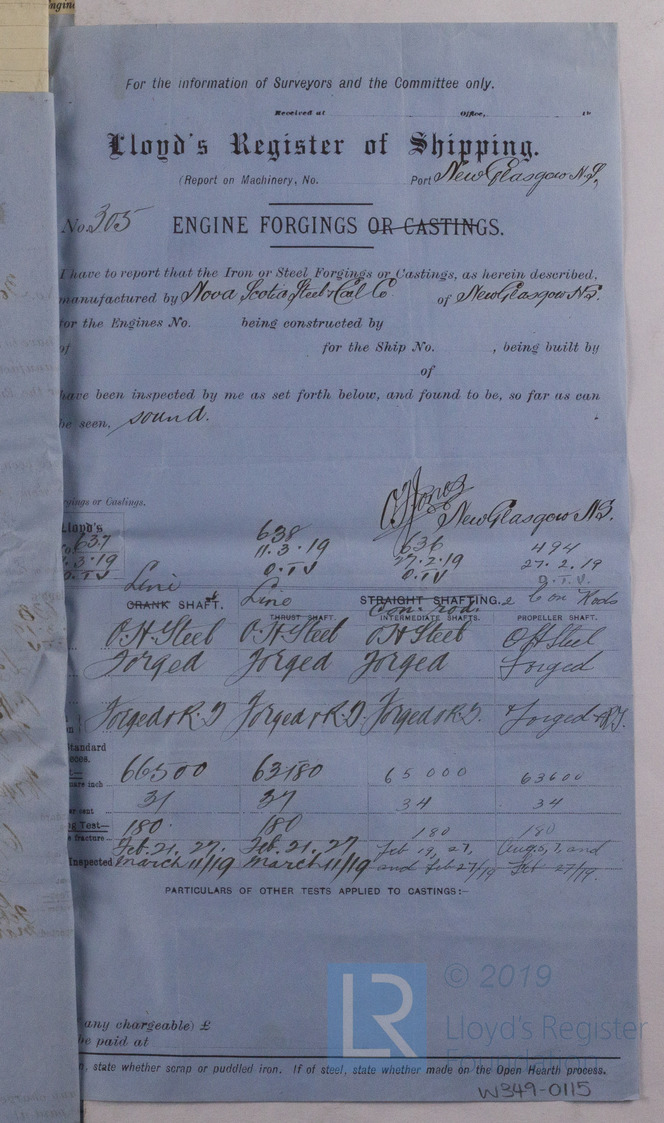 For the information of Surveyors and the Committee only.
Received at Office, 19
Lloyd's Register of Shipping.
(Report on Machinery, No. Port New Glasgow N.S,
No. 305 ENGINE FORGINGS OR CASTINGS.
I have to report that the Iron or Steel Forgings or Castings, as herein described,
manufactured by Nova Scotia Steel & Coal Co of New Glasgow NS.
for the Engines No. being constructed by
of for the Ship No. , being built by
of
have been inspected by me as set forth below, and found to be, so far as can
be seen, sound.
rgings or Castings.
New Glasgow N.S.
Lloyd's
637 638 636 494
.3.19 11.3.19 27.2.19 27.2.19
O.T.V O.T.V O.T.V O.T.V.
Line Line Con Rods
CRANK SHAFT. STRAIGHT SHAFTING.
Con. rod
THRUST SHAFT. INTERMEDIATE SHAFTS. PROPELLER SHAFT.
O.H Steel O.H Steel O H Steel O H Steel
Forged Forged Forged Forged
Forged & R.T Forged & R.T Forged & R.T. Forged & R.T.
Standard
eces.
66500 63180 65000 63600
uare inch
31 37 34 34
er cent
g Test—
180 180 180 180
e fracture
Feb. 21, 27. Feb. 21, 27 Feb 19, 27, Aug. 5, 7, and
Inspected March 11/19 March 11/19 and Feb 27/19 Feb 27/19.
PARTICULARS OF OTHER TESTS APPLIED TO CASTINGS:—
any chargeable) £
be paid at
n, state whether scrap or puddled iron. If of steel, state whether made on the Open Hearth process.
© 2019
LR
Lloyd's Register
Foundation
W349-0115